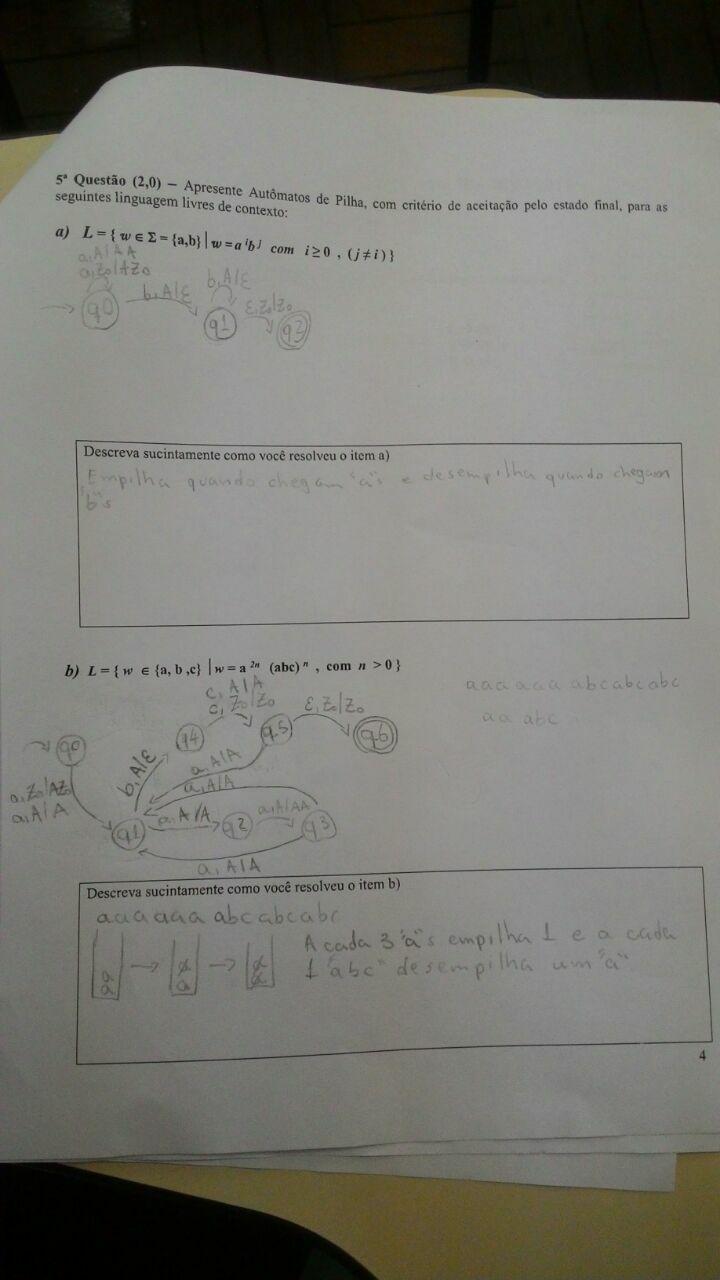 5ª Questão (2,0) – Apresente Autômatos de Pilha, com critério de aceitação pelo estado final, para as
seguintes linguagem livres de contexto:
a) L = { w ∈ Σ = {a,b} | w = a^i b^j com i ≥ 0 , (j ≠ i) }
a,A/AA
a,Z0/AZ0
b,A/ε
b,A/ε
ε,Z0/Z0
q0
q1
q2
Descreva sucintamente como você resolveu o item a)
Empilha quando chegam "a"s e desempilha quando chegam
"b"s
b) L = { w ∈ {a, b ,c} | w = a^2n (abc)^n , com n > 0 }
aaaaaa abcabcabc
aa abc
c, A/A
c, Z0/Z0
ε, Z0/Z0
q0
q4
q5
q6
b, A/ε
a, A/A
a, A/A
a, Z0/AZ0
a, A/A
q1
a, A/A
q2
a, A/AA
q3
a, A/A
Descreva sucintamente como você resolveu o item b)
aaaaaa abcabcabc
A cada 3 "a"s empilha 1 e a cada
1 "abc" desempilha um "a"
4